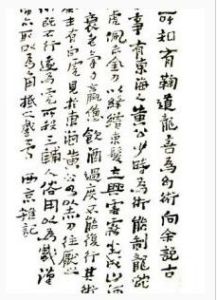 所知有鞠道龍善為幻術向余說古
事有東海人黃公少時為術能制龍蛇
虎佩金刀以絳繒束髮立興雲霧坐成山河
衰老氣力羸憊飲酒過度不能復行其術
末有白虎見於東海黃公乃以赤刀往厭之
術既不行遂為虎所殺三輔人俗用以為戲漢
亦取以為角抵之戲焉 西京雜記